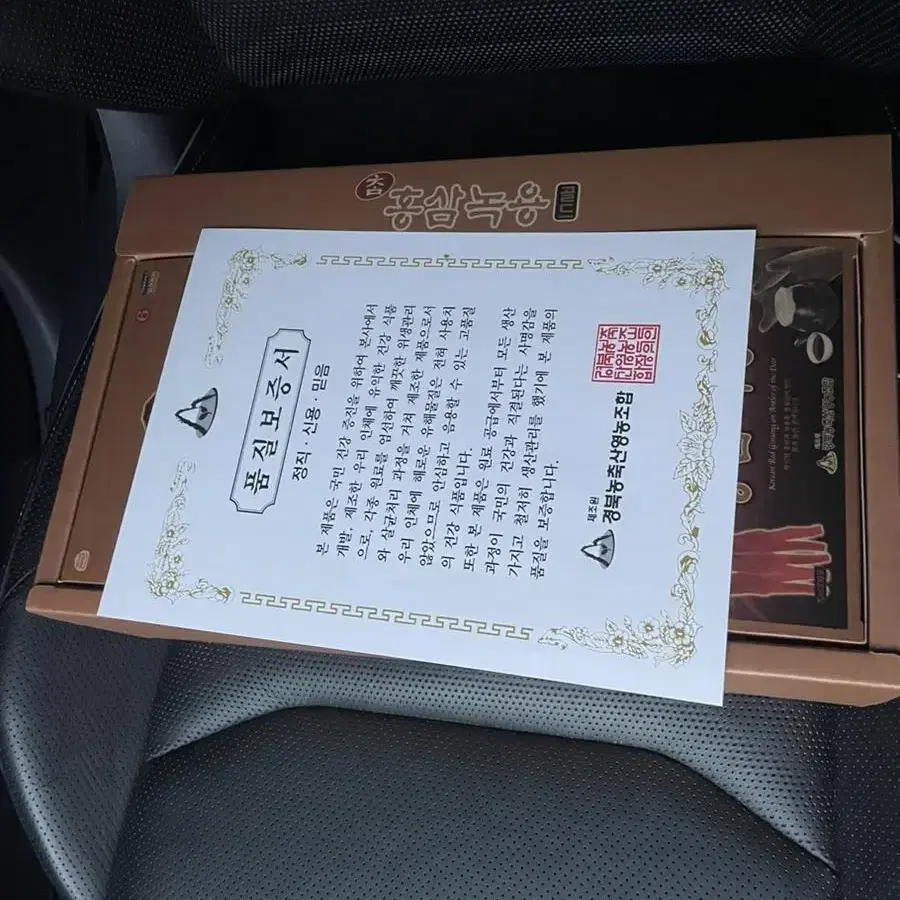 홍삼녹용
품질보증서
정직 · 신용 · 믿음
본 제품은 국민 건강 증진을 위하여 본사에서
개발, 제조한 우리 인체에 유익한 건강 식품
으로, 각종 원료를 엄선하여 깨끗한 위생관리
와 살균처리 과정을 거쳐 제조한 제품으로서
우리 인체에 해로운 유해물질은 전혀 사용치
않았으므로 안심하고 음용할 수 있는 고품질
의 건강 식품입니다.
또한 본 제품은 원료 공급에서부터 모든 생산
과정이 국민의 건강과 직결된다는 사명감을
가지고 철저히 생산관리를 했기에 본 제품의
품질을 보증합니다.
제조원
경북농축산영농조합
Korean Red Ginseng on Antler of the Deer